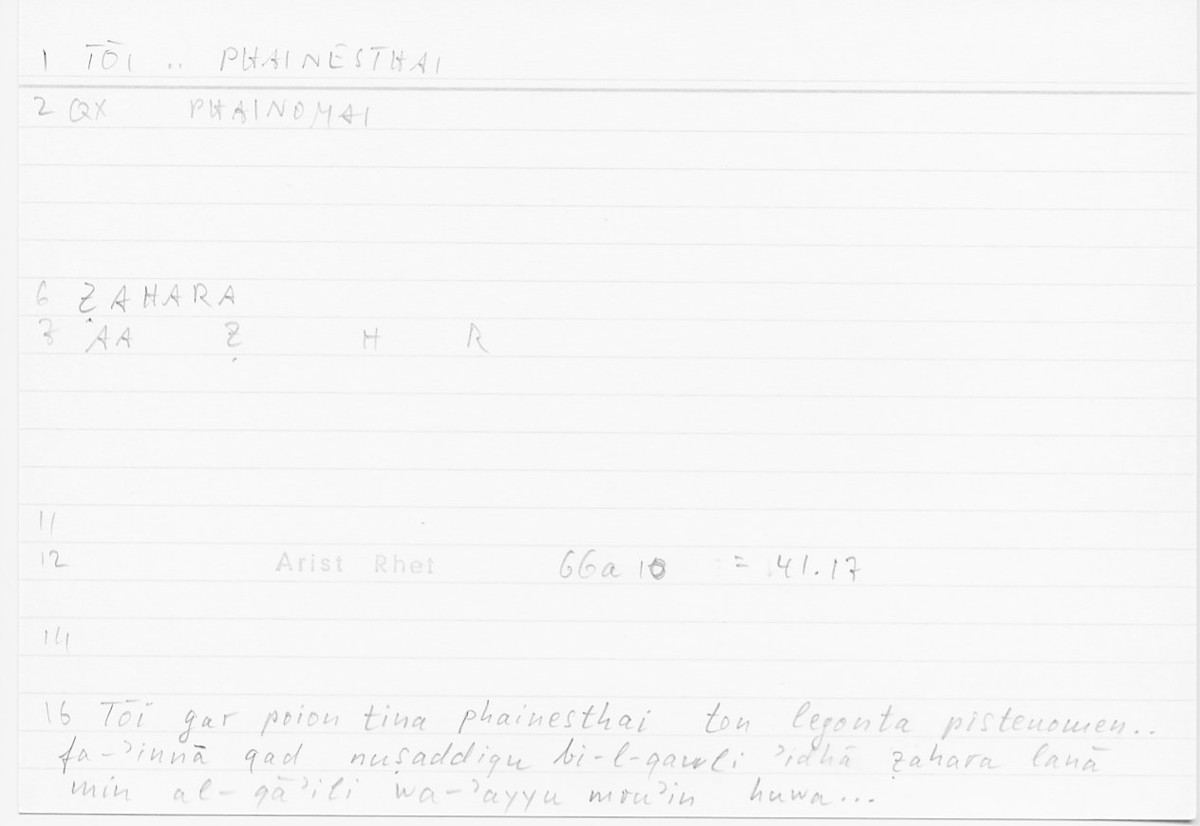 1 TŌI .. PHAINESTHAI
2 QX PHAINOMAI
6 ẒAHARA
7 AA Ẓ H R
11
12 Arist Rhet 66a 10 = 41.17
14
16 Tōi gar poion tina phainesthai ton legonta pisteuomen..
fa-ʾinnā qad nuṣaddiqu bi-l-qawli ʾidhā ẓahara lanā
min al-qāʾili wa-ʾayyu mruʾin huwa...